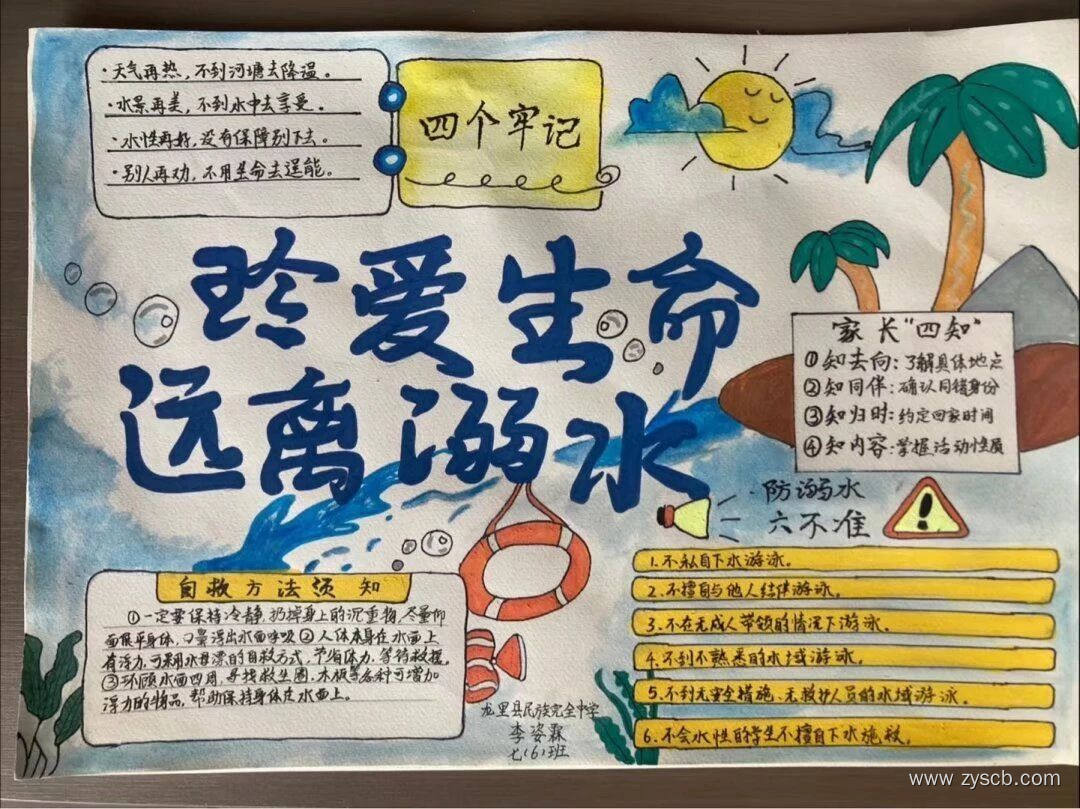 ·天气再热,不到河塘去降温。
·水景再美,不到水中去享受。
·水性再好,没有保障别下去。
·别人再劝,不用生命去逞能。
四个牢记
珍爱生命
远离溺水
家长“四知”
①知去向:了解具体地点
②知同伴:确认同错身份
③知归时:约定回家时间
④知内容:掌握活动性质
·防溺水
六不准
1.不私自下水游泳。
2.不擅自与他人结伴游泳。
3.不在无成人带领的情况下游泳。
4.不到不熟悉的水域游泳。
5.不到无安全措施、无救护人员的水域游泳。
6.不会水性的学生不擅自下水施救。
自救方法须知
①一定要保持冷静,扔掉身上的沉重物,尽量仰
面展平身体,口鼻浮出水面呼吸②人体本身在水面上
有浮力,可采用水母漂的自救方式,节省体力,等待救援。
③环顾水面四周,寻找救生圈、木板等各种可增加
浮力的物品,帮助保持身体在水面上。
龙里县民族完全中学
李姿霖
七(6)班
www.zyscb.com